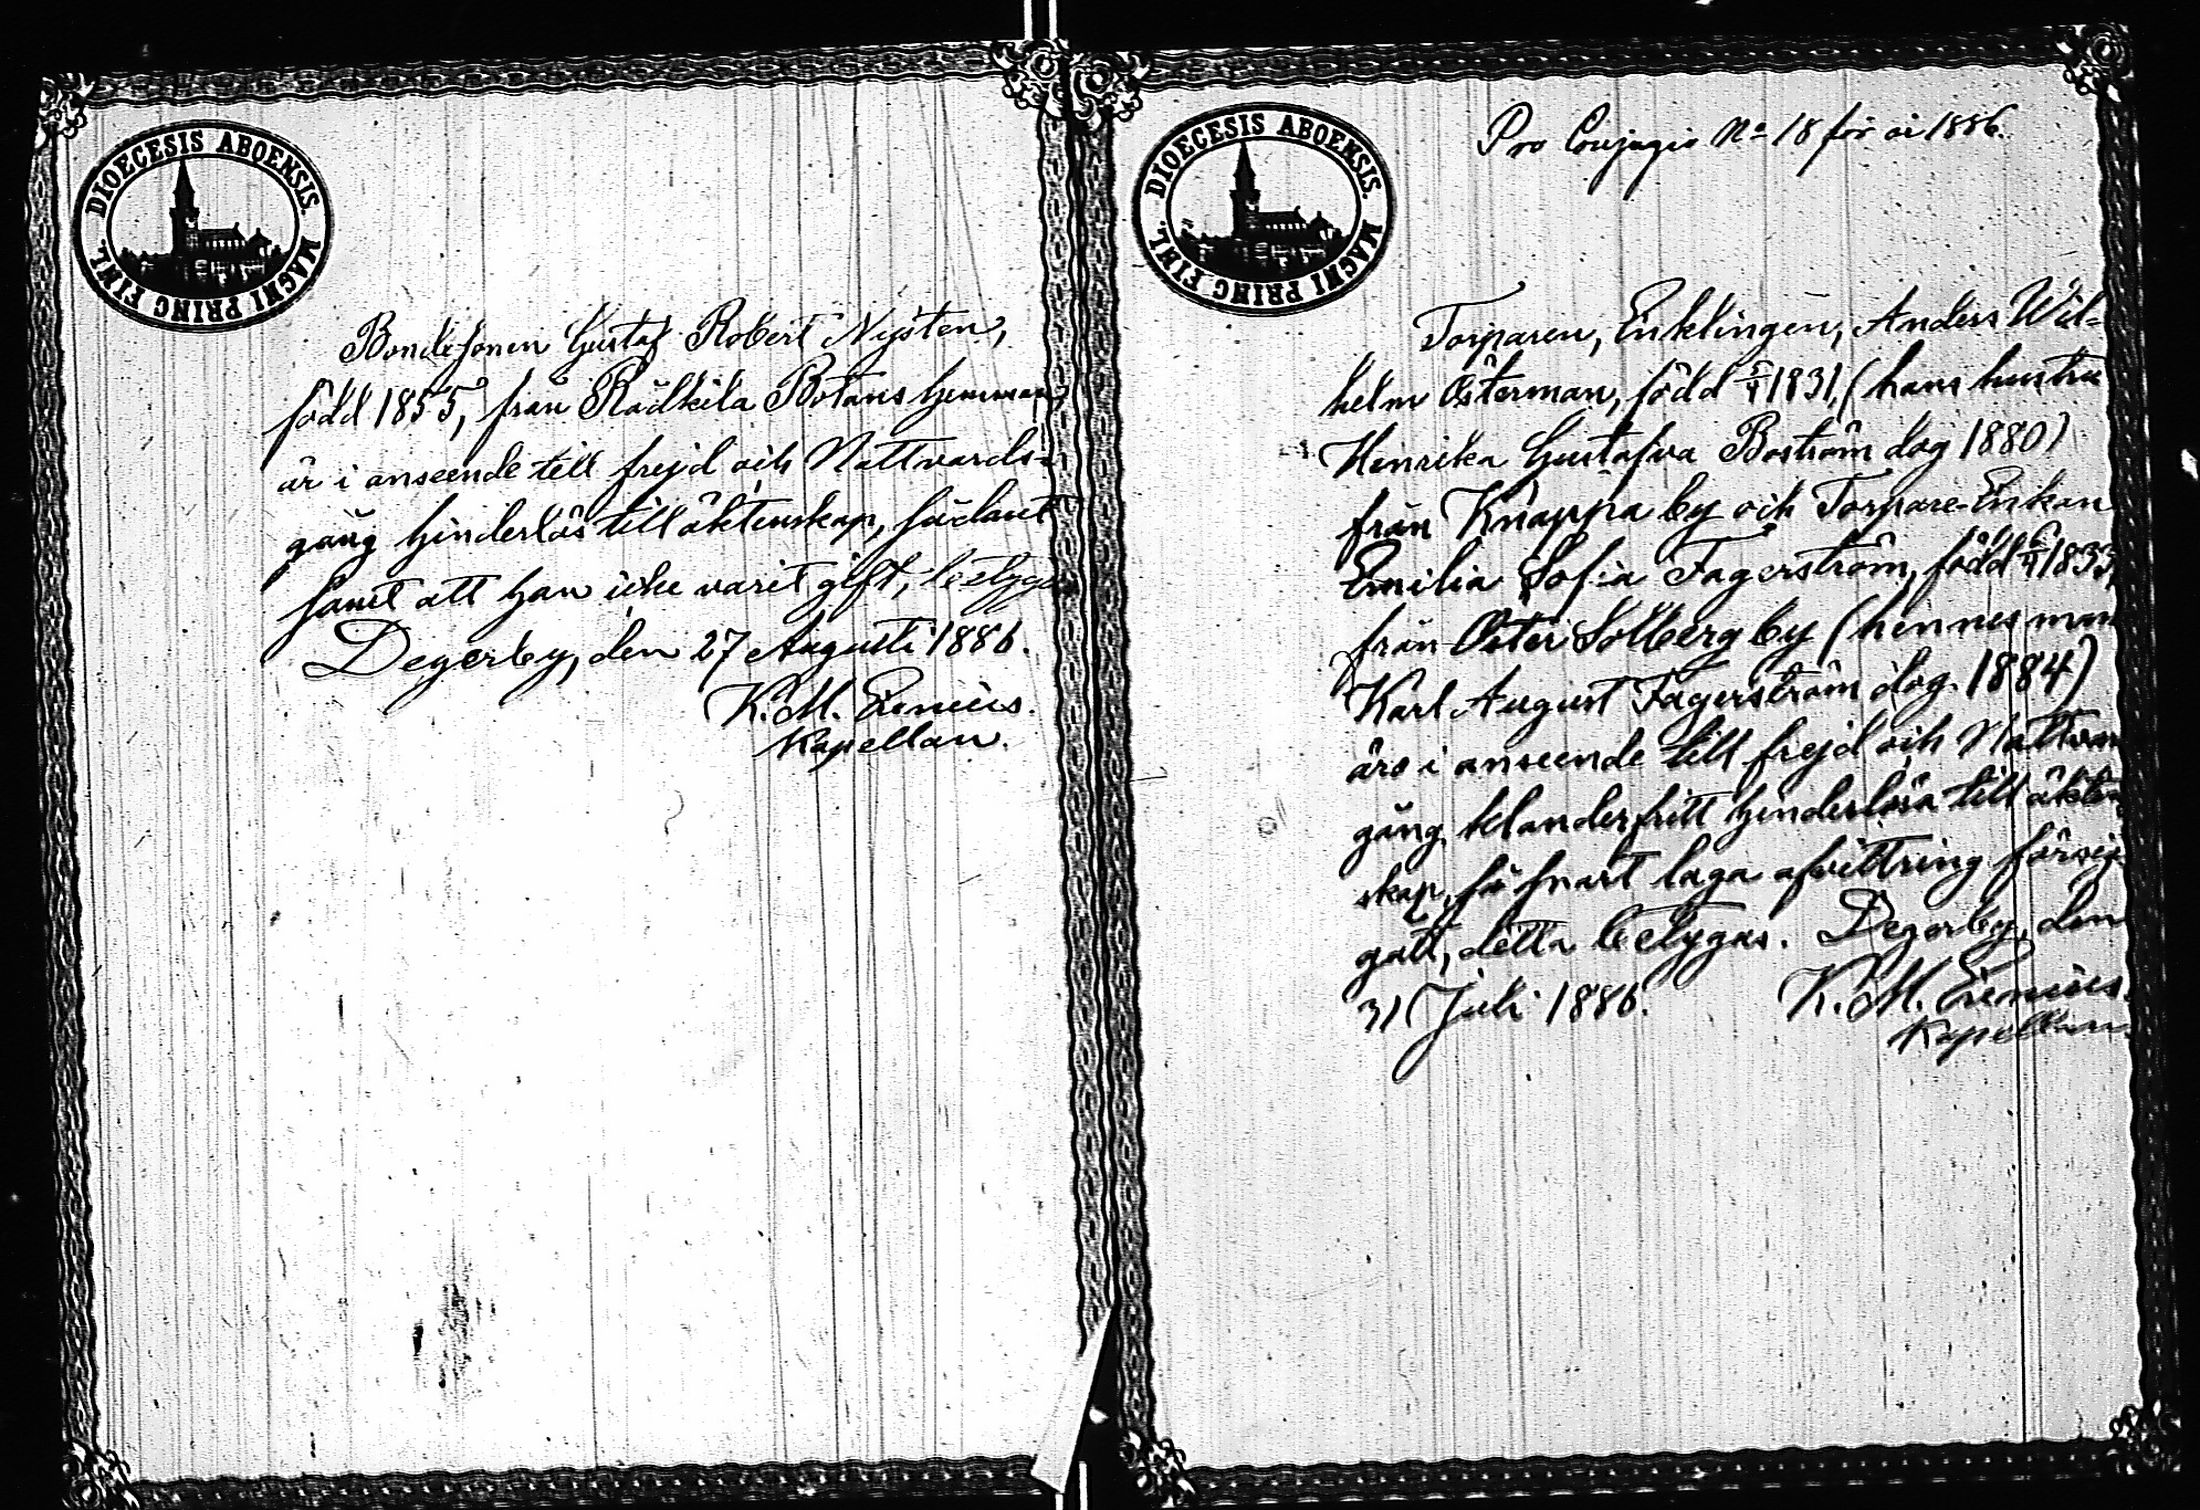 DIOECESIS ABOENSIS. MAGNI PRINC FINL.
Bondesonen Gustaf Robert Nysten,
född 1855, från Rådkila Botans hemman,
är i anseende till frejd och Nattvards-
gång hinderlös till äktenskap, sådant
samt att han icke varit gift, betygas
Degerby, den 27 Augusti 1886.
K. M.
Kapellan.
DIOECESIS ABOENSIS. MAGNI PRINC FINL.
Pro Conjugio No 18 för år 1886.
Torparen, Enklingen, Anders Wil-
helm Österman, född 1831, (hans hustru
Henrika Gustafva Boström dog 1880)
från Knappa by och Torpare-Enkan
Emilia Sofia Fagerström, född 1833,
från Öster Solberg by (hennes man
Karl August Fagerström dog 1884)
äro i anseende till frejd och Nattvar
gång klanderfritt hinderlösa till äkten
skap, så snart laga afvittring försig
gått, detta betygas. Degerby, den
31 Juli 1886. K. M.
Kapellan.